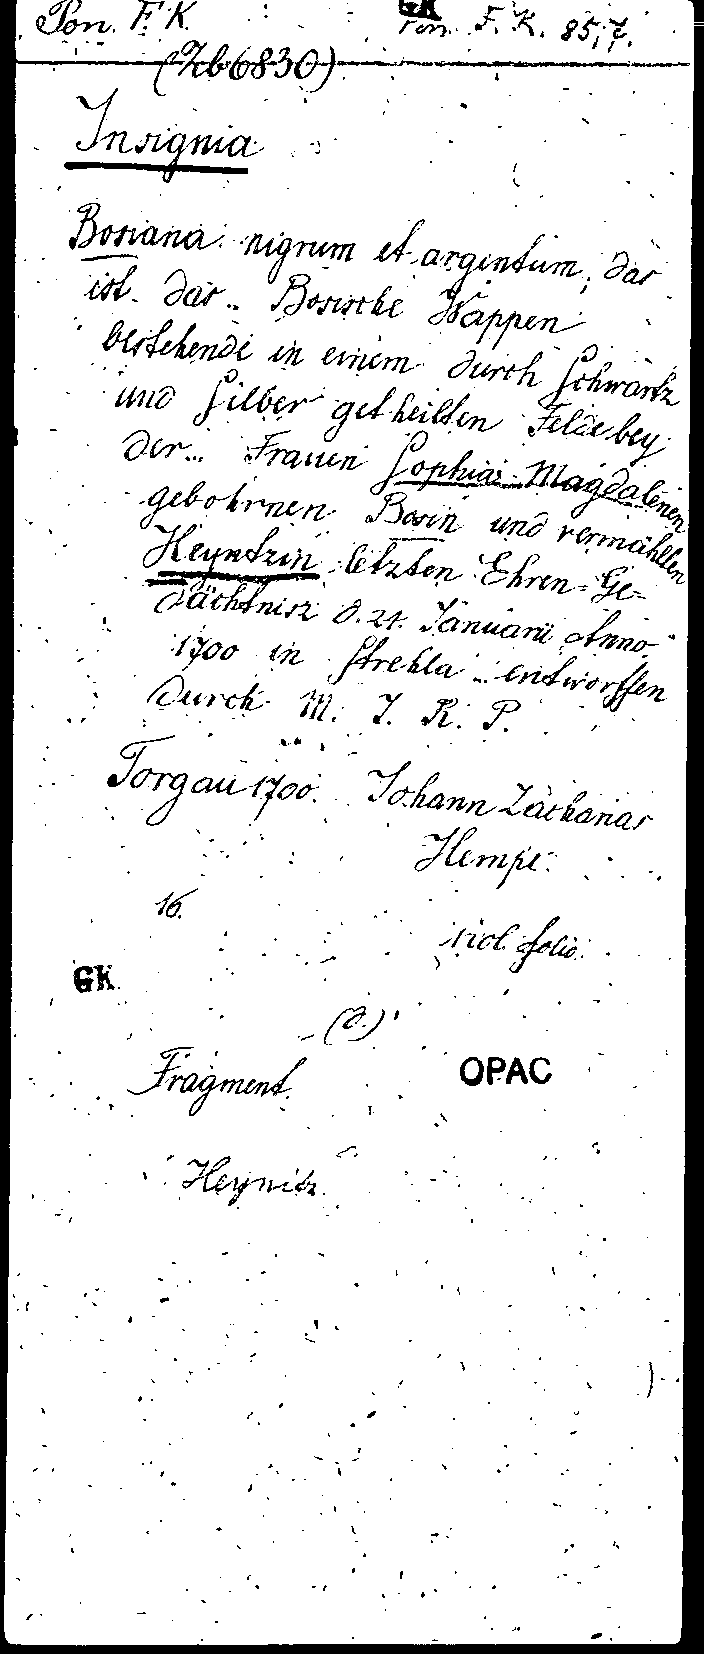 Pon. F. K. GK
Pon. F. K. 85,7.
(Zb 6830)
Insignia
Bosiana nigrum et argentum, das
ist. das.. Bosische Wappen
bestehende in einem durch Schwartz
und Silber getheilten Felde bey
der... Frauen Sophia Magdalenen
gebohrnen Bosin und vermählten
Heyntzin letzten Ehren-Ge-
dächtnisz d. 21. Januarii Anno
1700 in Strehla... entworffen
durch M. J. R. P.
Torgau 1700. Johann Zacharias
Hempe.
16.
folio.
GK
(d.)
Fragment.
OPAC
Heynitz